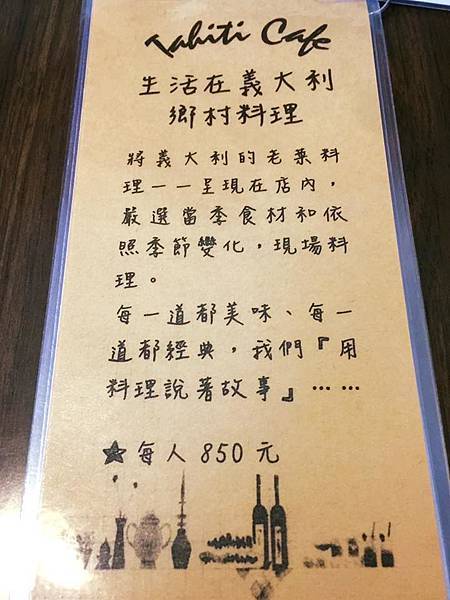 Tahiti Cafe
生活在義大利
鄉村料理
將義大利的老菜料
理一一呈現在店內，
嚴選當季食材和依
照季節變化，現場料
理。
每一道都美味、每一
道都經典，我們『用
料理說著故事』……
★每人850元